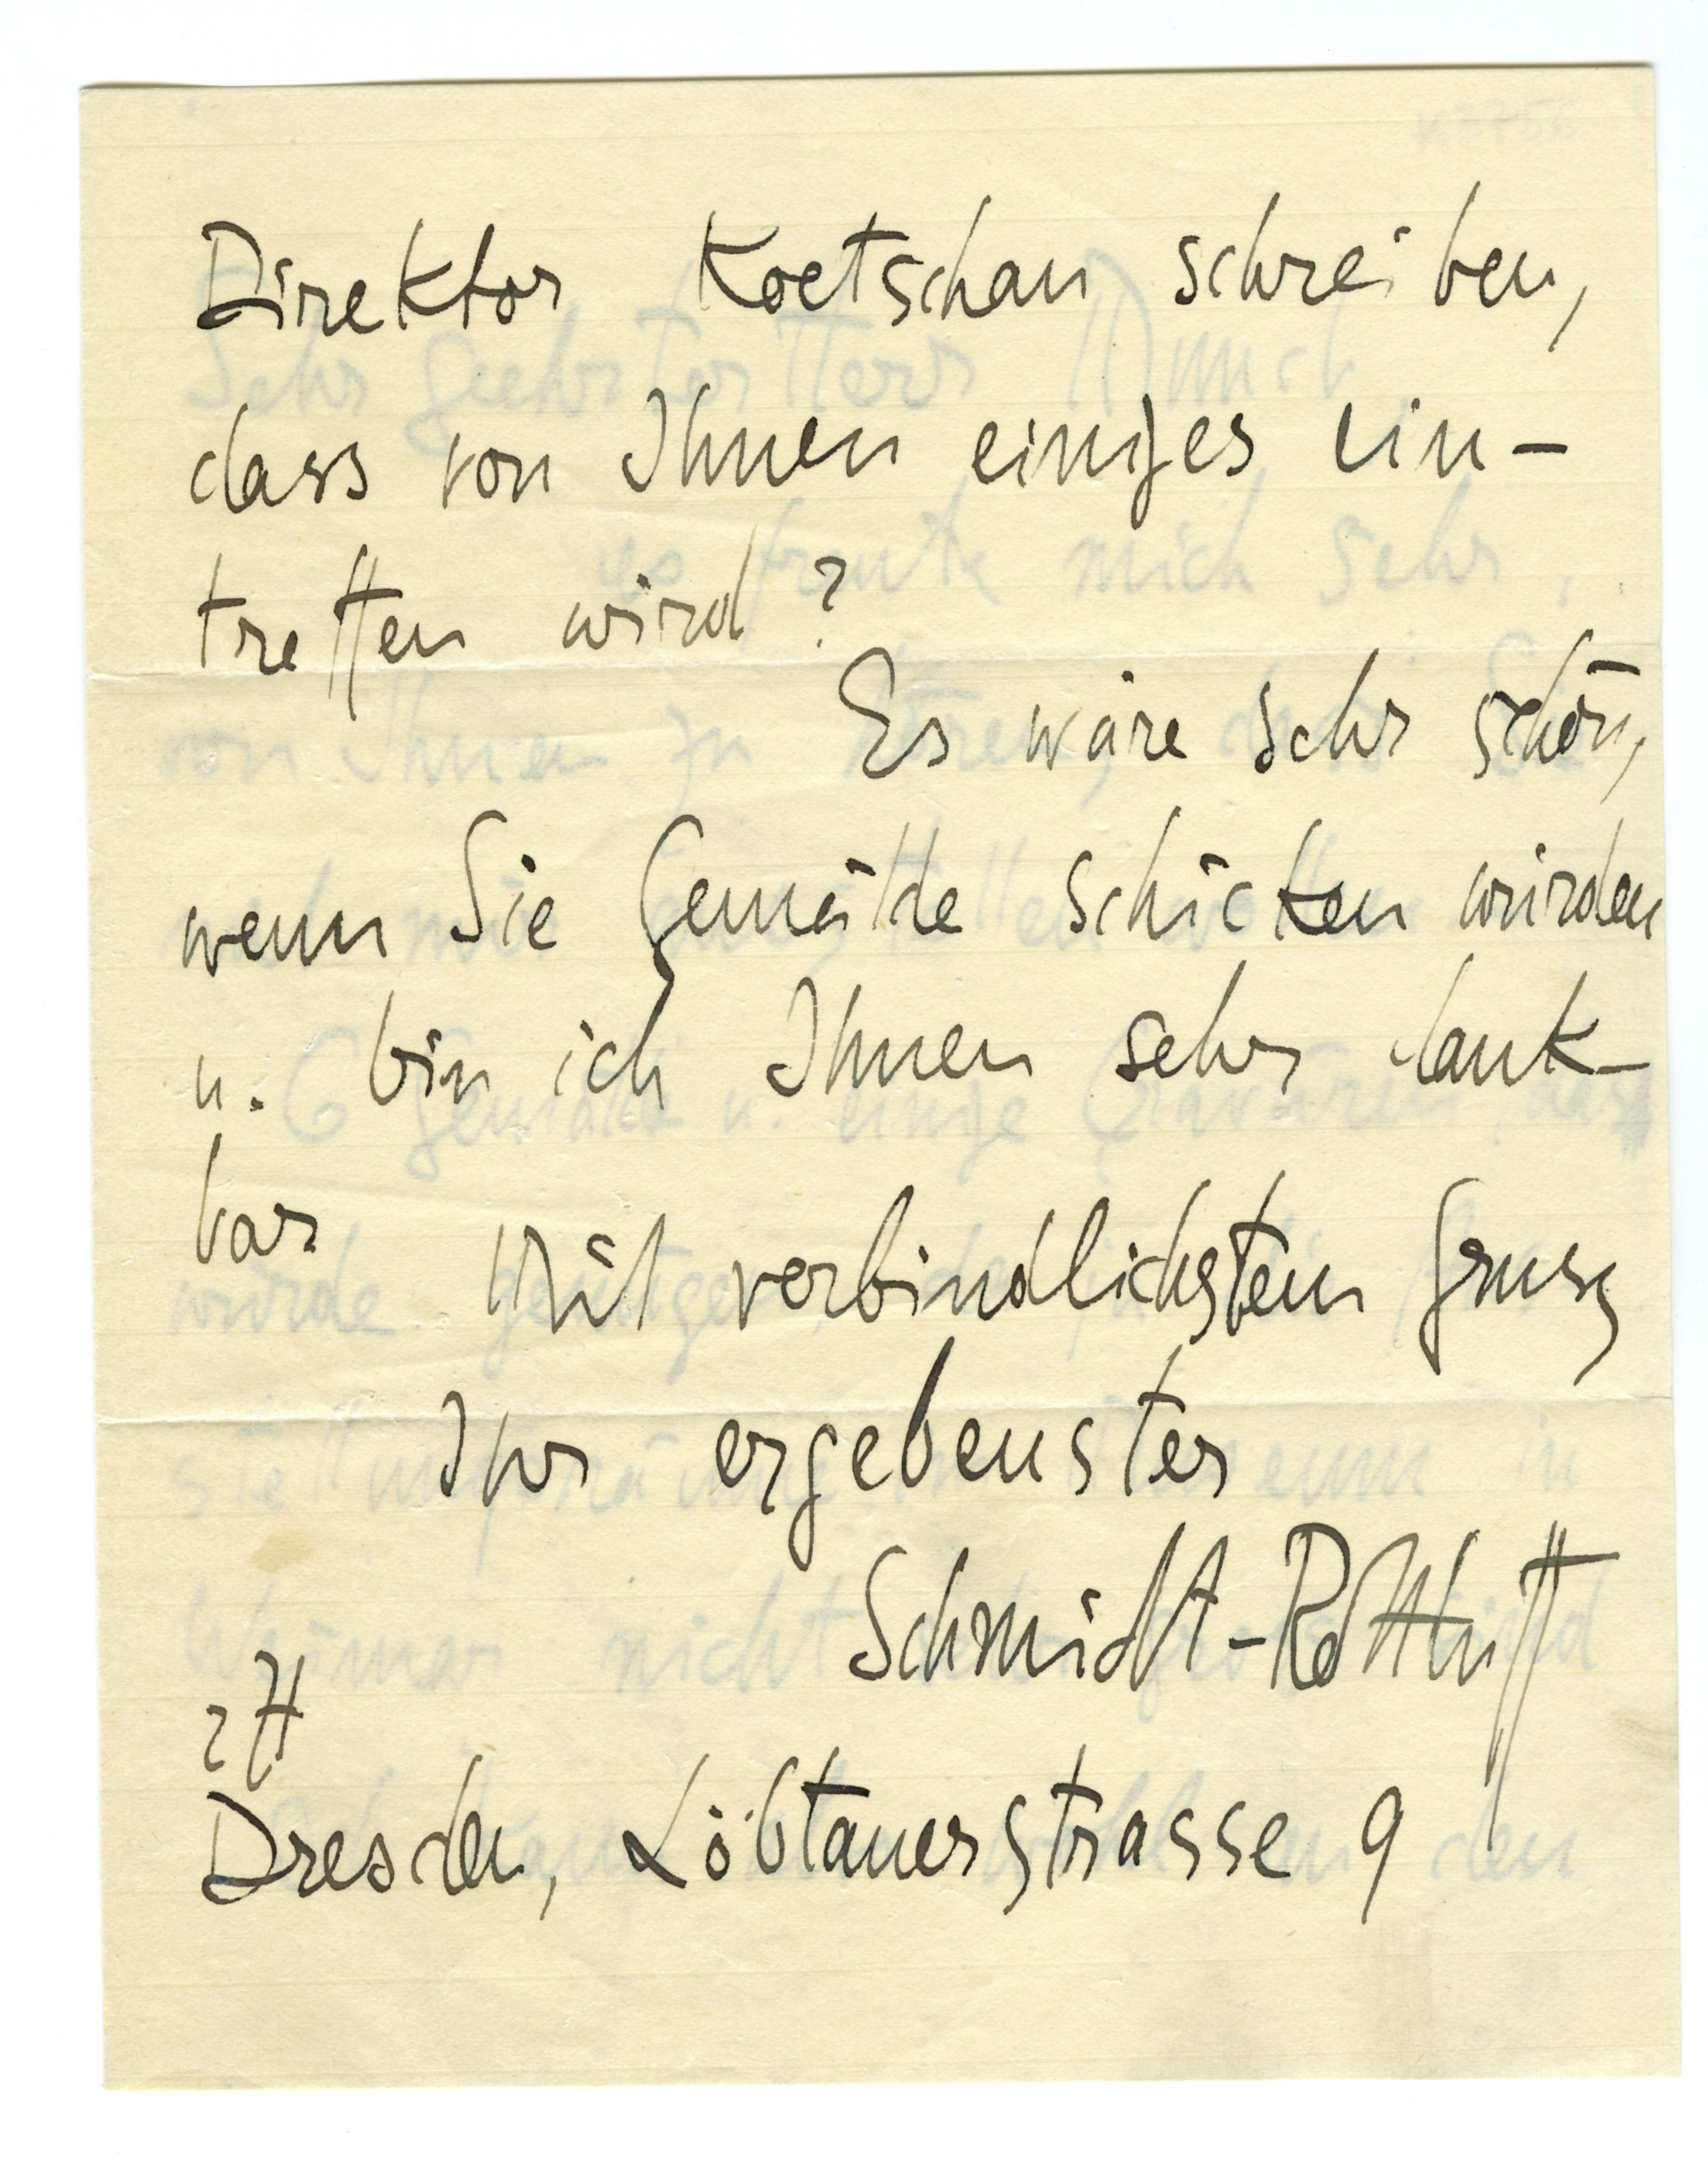 Direktor Koetschau schreiben,
dass von Ihnen einiges ein-
treffen wird?
Es wäre sehr schön,
wenn Sie Gemälde schicken würden
u. bin ich Ihnen sehr dank-
bar
Mit verbindlichstem Grusz
Ihr ergebenster
Schmidt-Rottluff
zH
Dresden, Löbtauerstrasse 9